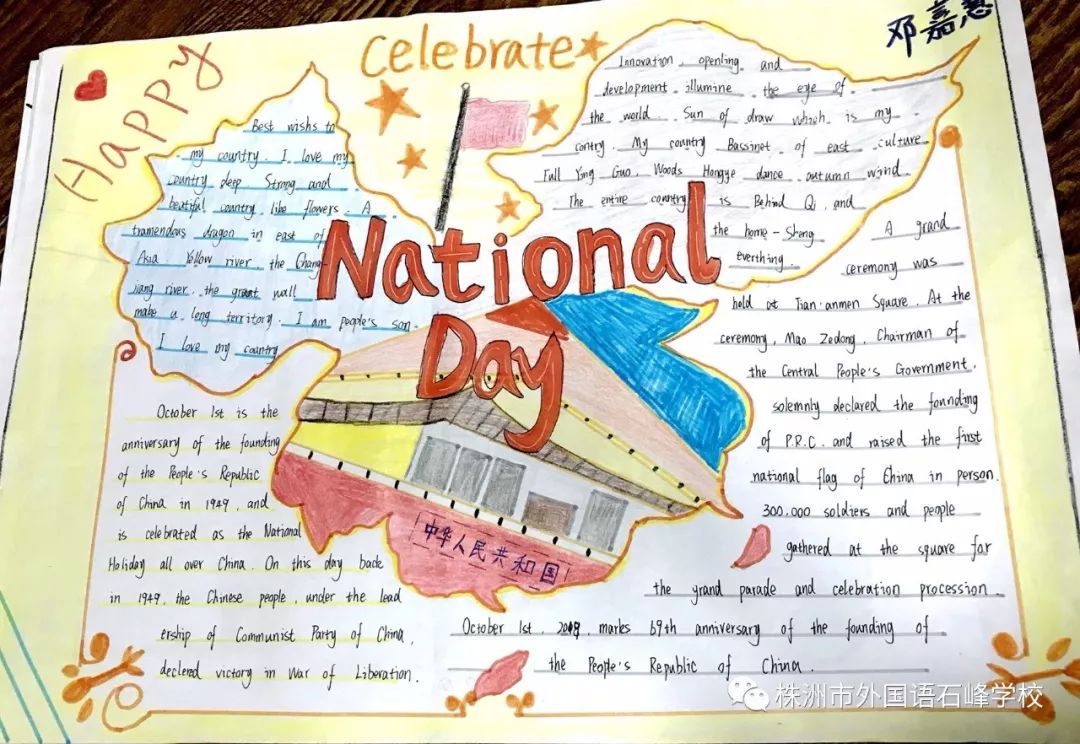 Happy
Celebrate
邓嘉慧
National
Day
Best wishs to
my country. I love my
country deep. Strong and
beutiful country like flowers. A
tramendous dragon in east of
Asia. Yellow river, the Chang
jiang river, the graet wall
make a long territory. I am people's son.
I love my country
Innovation, openling and
development illumine the eye of
the world. Sun of draw which is my
contry. My country Bassinet of east culture
Full Ying Guo, Woods Hongye dance autumn wind.
The entire country is Behind Qi, and
the home-Sheng
everthing.
A grand
ceremony was
held at Tian'anmen Square. At the
ceremony, Mao Zedong, Chairman of
the Central People's Government,
solemnly declared the founding
of P.R.C. and raised the first
national flag of China in person.
300,000 soldiers and people
gathered at the square for
the grand parade and celebration procession.
October 1st, 2018, marks 69th anniversary of the founding of
the People's Republic of China.
October 1st is the
anniversary of the founding
of the People's Republic
of China in 1949, and
is celebrated as the National
Holiday all over China. On this day back
in 1949, the Chinese people, under the lead
ership of Communist Party of China,
declered victory in War of Liberation.
中华人民共和国
株洲市外国语石峰学校